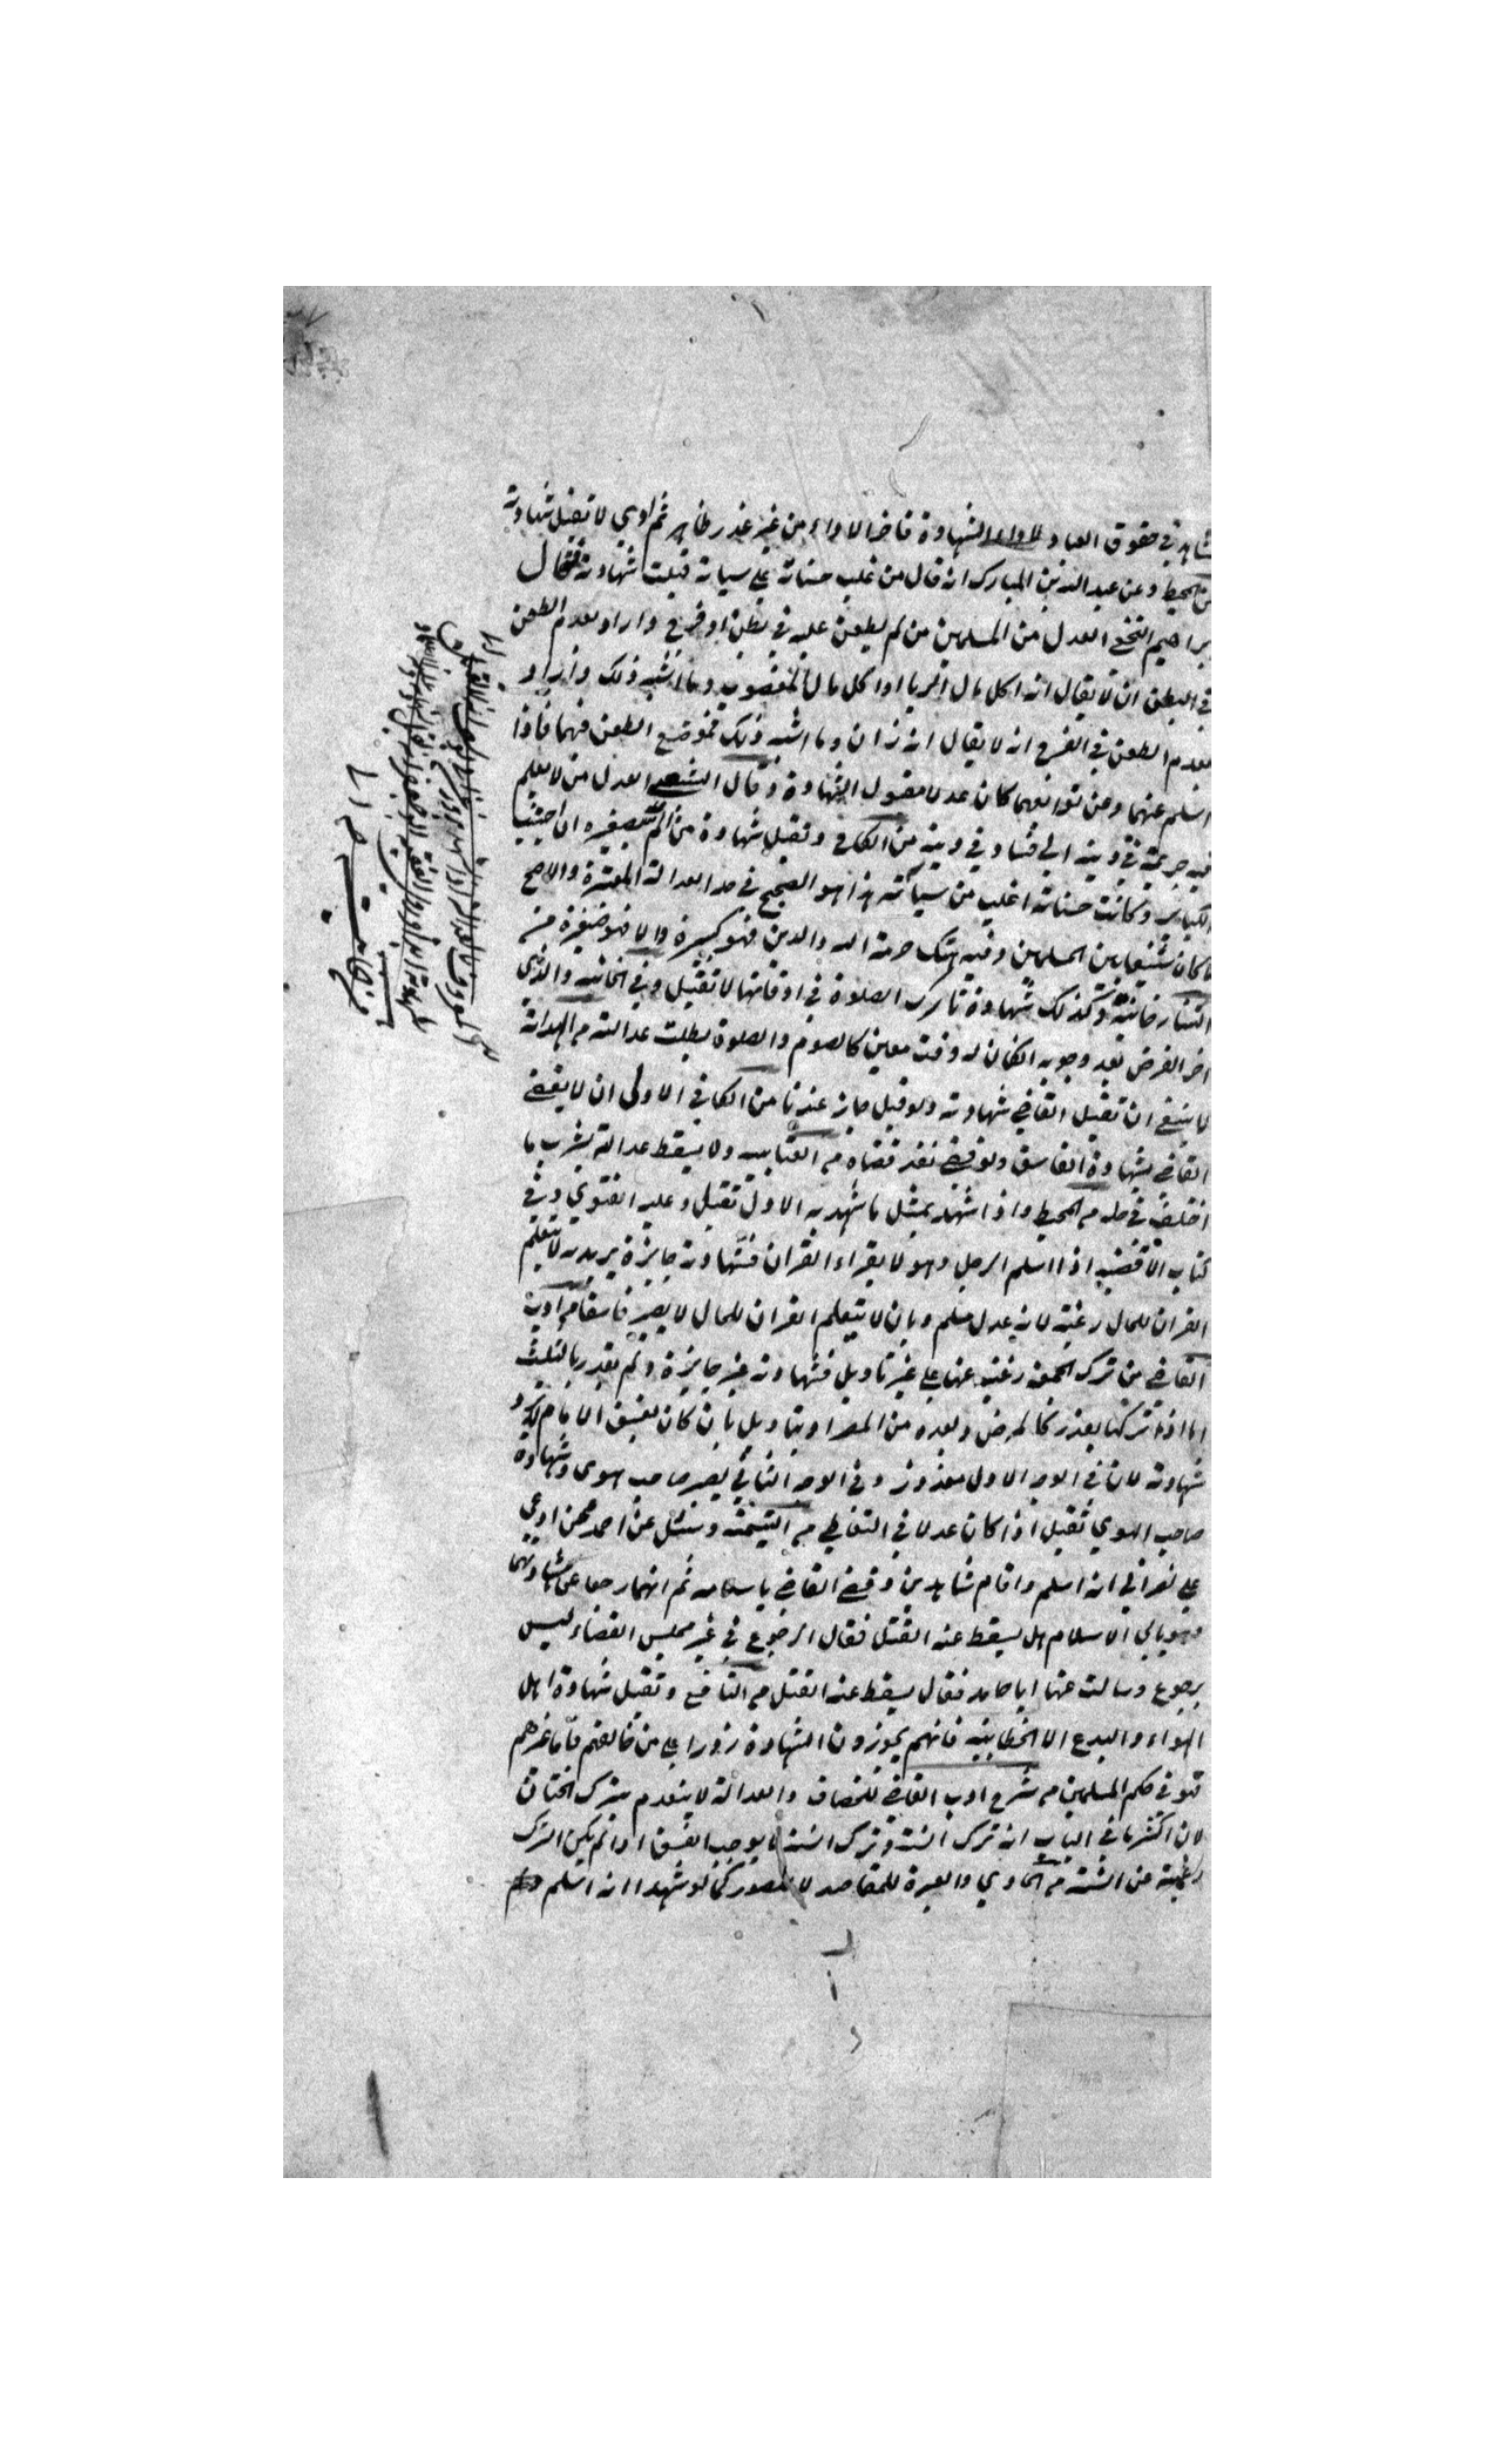 شاهد في حقوق العباد لاداء الشهادة فاخر الاداء من غير عذر ظاهر ثم ادي لا تقبل شهادته
من المحيط وعن عبد الله بن المبارك انه قال من غلب حسناته علي سياته قبلت شهادته فقال
براهيم النخعي العدل من المسلمين من لم يطعن عليه في بطن او فرج واراد بعدم الطعن
في البطن ان لا يقال انه اكل مال الربا او اكل مال المغصوب وما اشبه ذلك واراد
بعدم الطعن في الفرج انه لا يقال انه زان وما اشبه ذلك فموضع الطعن فهما فاذا
اسلم عنهما ومن توابعهما كان عدلا مقبول الشهادة وقال الشعبي العدل من لا يعلم
فيه جريمة في دينه اي فساد في دينه من الكافي وتقبل شهادة من الم بصغيره ان اجتنب
الكباير وكانت حسناته اغلب من سيأته هذا هو الصحيح في حد العدالة المعتبرة والاصح
ما كان شنيعا بين المسلمين وفيه هتك حرمة الله والدين فهو كبيرة والا فهو صغيرة من
التتارخانية وكذلك شهادة تارك الصلوة في اوقاتها لا تقبل وفي الخانيه والذي
اخر الفرض بعد وجوبه انكان له وقت معين كالصوم والصلوة بطلت عدالته من الهداية
لا ينبغي ان تقبل القاضي شهادته ولو قبل جاز عندنا من الكافي الاولى ان لا يقضي
القاضي بشهادة الفاسق ولو قضي نفذ قضاه من العتابيه ولا يسقط عدالته بشرب ما
اختلف في حله من المحيط واذا شهد بمثل ما شهد به الاول تقبل وعليه الفتوي وفي
كتاب الاقضيه اذا اسلم الرجل وهو لا يقراء القران فشهادته جايزة يريد به لا يتعلم
القران للحال رغبة لانه عدل مسلم وبان لا يتعلم القران للحال لا يصير فاسقا من ادب
القاضي من ترك الجمعه رغبة عنها علي غير تاويل فشهادته غير جايزة ولم يقدر بالثلث
اما اذا تركها بعذر كالمرض وبعده من المصر او بتاويل بان كان يفسق الامام لا يرد
شهادته لان في الوجه الاول معذور وفي الوجه الثاني يصير صاحب هوى وشهادة
صاحب الهوي تقبل اذا كان عدلا في التعاطي من اليتيمة وسئل عن احمد فيمن ادعي
علي نصراني انه اسلم واقام شاهدين وقضي القاضي باسلامه ثم انهما رجعا عن شهادتهما
وهو يابي الاسلام هل يسقط عنه القتل فقال الرجوع في غير مجلس القضاء ليس
برجوع وسالت عنها ابا حامد فقال يسقط عنه القتل من النافع وتقبل شهادة اهل
الهواء والبدع الا الخطابيه فانهم يجوزون الشهادة زورا علي من خالفهم فاما غيرهم
فهو في حكم المسلمين من شرح ادب القاضي للخصاف والعدالة لا ينعدم بترك الختان
لان اكثر ما في الباب انه ترك السنة وترك السنة لا يوجب الفسق اذا لم يكن الترك
رغبة عن السنة من الحاوي والعبرة للمقاصد لا للصور كما لو شهدا انه اسلم